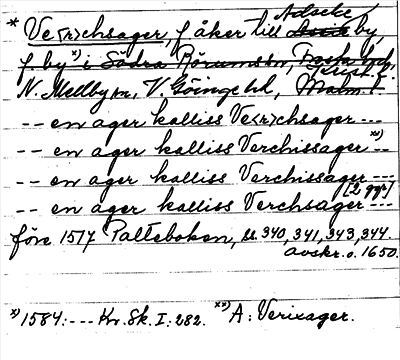 * Ve<r>chsager, f åker till Adseke by,
f by x) i Södra Rörums sn, Frosta hd,
Krist. l.
N. Mellby sn, V. Göinge hd, Malm. l.
-- en ager kalliss Ve<r>chsager ---
-- en ager kalliss Verchissager -- xx)
-- en ager kalliss Verchissager ---
-- en ager kalliss Verchsager [2 ggr] ---
före 1517 Palteboken, bl. 340, 341, 343, 344.
avskr. o. 1650.
x) 1584: --- Kr. Sk. I: 282. xx) A: Verixager.